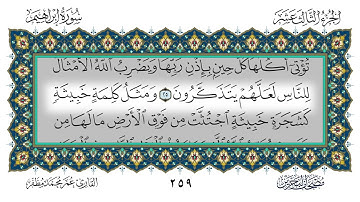 الجزء الثاني عشر
سورة إبراهيم
تُؤْتِي أُكُلَهَا كُلَّ حِينٍ بِإِذْنِ رَبِّهَا وَيَضْرِبُ اللَّهُ الْأَمْثَالَ
لِلنَّاسِ لَعَلَّهُمْ يَتَذَكَّرُونَ ٢٥ وَمَثَلُ كَلِمَةٍ خَبِيثَةٍ
كَشَجَرَةٍ خَبِيثَةٍ اجْتُثَّتْ مِن فَوْقِ الْأَرْضِ مَا لَهَا مِن
٢٥٩
القارئ عمر محمد مظفر